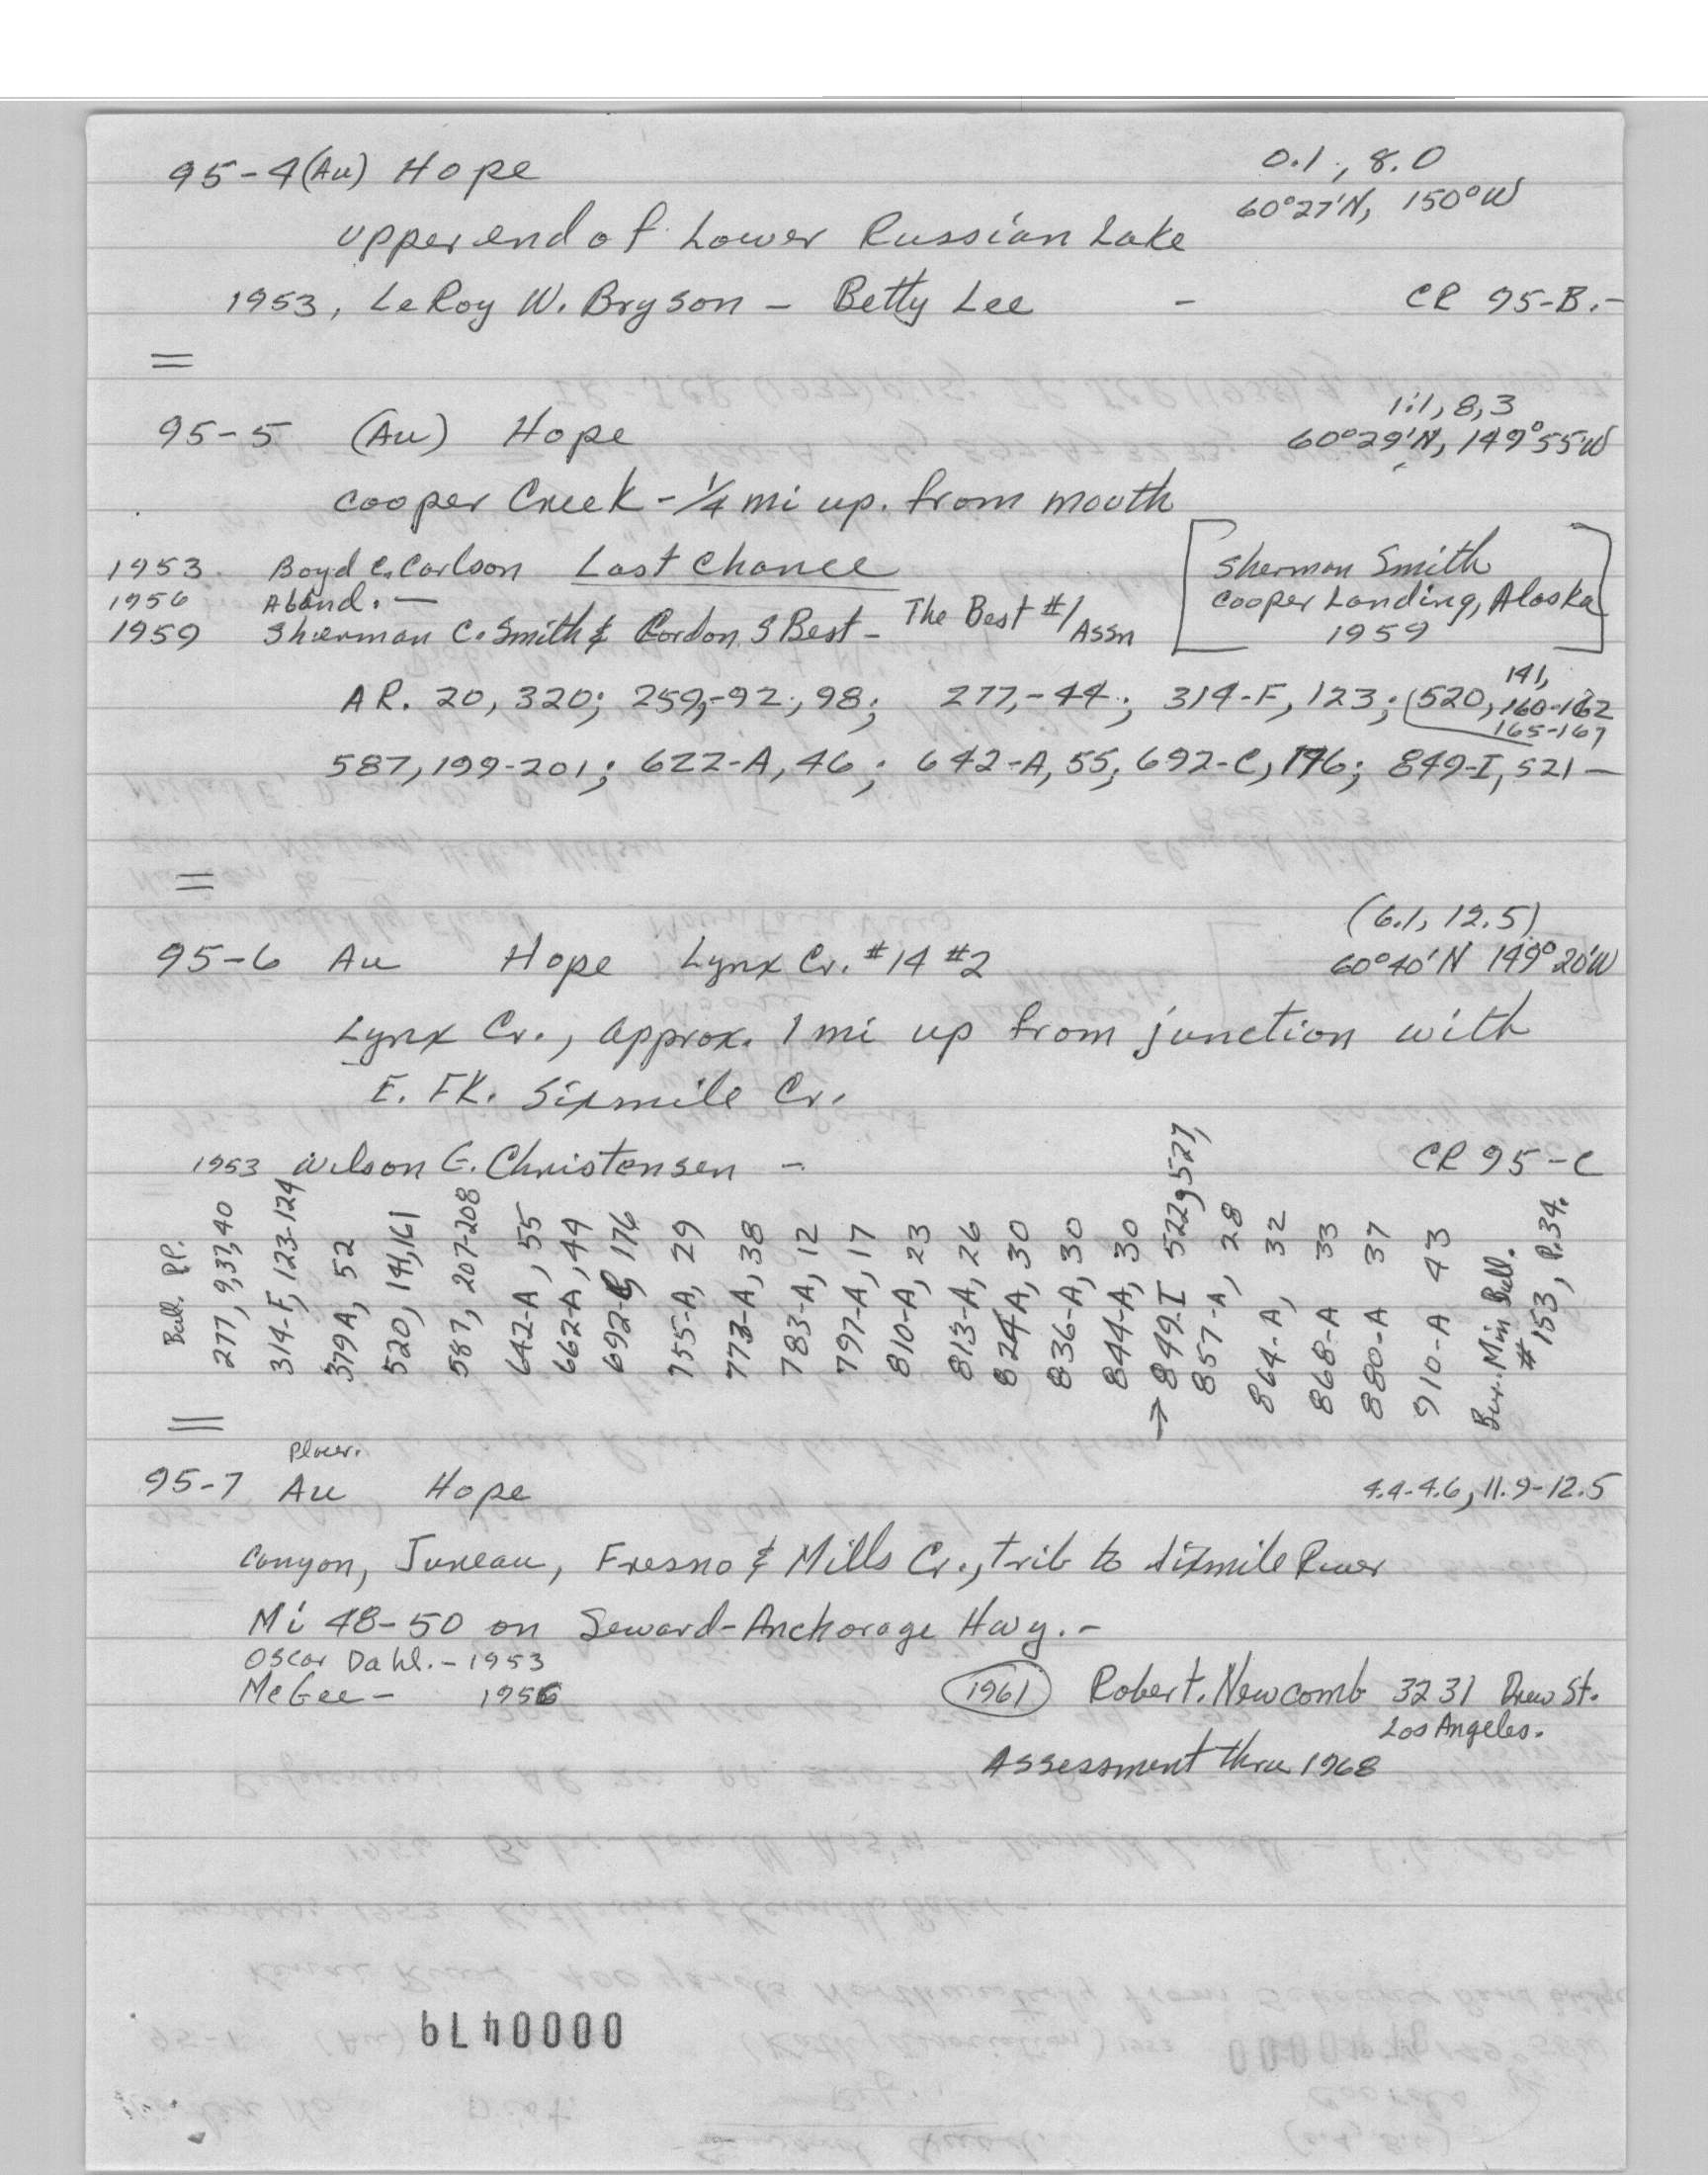 95-4 (Au) Hope 0.1, 8.0
60°27'N, 150°W
upper end of Lower Russian Lake
1953, LeRoy W. Bryson - Betty Lee - CR 95-B.-
=
95-5 (Au) Hope 1.1, 8.3
60°29'N, 149°55'W
Cooper Creek - 1/4 mi up. from mouth
1953 Boyd C. Carlson Last Chance
1956 Aband. -
1959 Sherman C. Smith & Gordon S Best - The Best #1 Assn
[Sherman Smith
Cooper Landing, Alaska
1959]
AR. 20, 320; 259,-92, 98; 277,-44; 314-F, 123; (520, 141, 160-162
165-167
587, 199-201; 622-A, 46; 642-A, 55; 692-C, 176; 849-I, 521 -
=
(6.1, 12.5)
95-6 Au Hope Lynx Cr. #14 #2 60°40'N 149°20'W
Lynx Cr., approx. 1 mi up from junction with
E. FK. Sixmile Cr.
1953 Wilson G. Christensen - CR 95-C
Bull. PP.
277, 9,37,40
314-F, 123-124
379A, 52
520, 141,161
587, 207-208
642-A, 55
662-A, 49
692-C, 176
755-A, 29
773-A, 38
783-A, 12
797-A, 17
810-A, 23
813-A, 26
824-A, 30
836-A, 30
844-A, 30
→ 849-I 522, 527,
857-A, 28
864-A, 32
868-A 33
880-A 37
910-A 43
Bur. Min Bull.
# 153, P.34.
=
Placer.
95-7 Au Hope 4.4-4.6, 11.9-12.5
Canyon, Juneau, Fresno & Mills Cr., trib to Sixmile River
Mi 48-50 on Seward-Anchorage Hwy. -
Oscar Dahl. - 1953
McGee - 1956
1961 Robert. Newcomb 3231 Drew St.
Los Angeles.
Assessment thru 1968
00000479